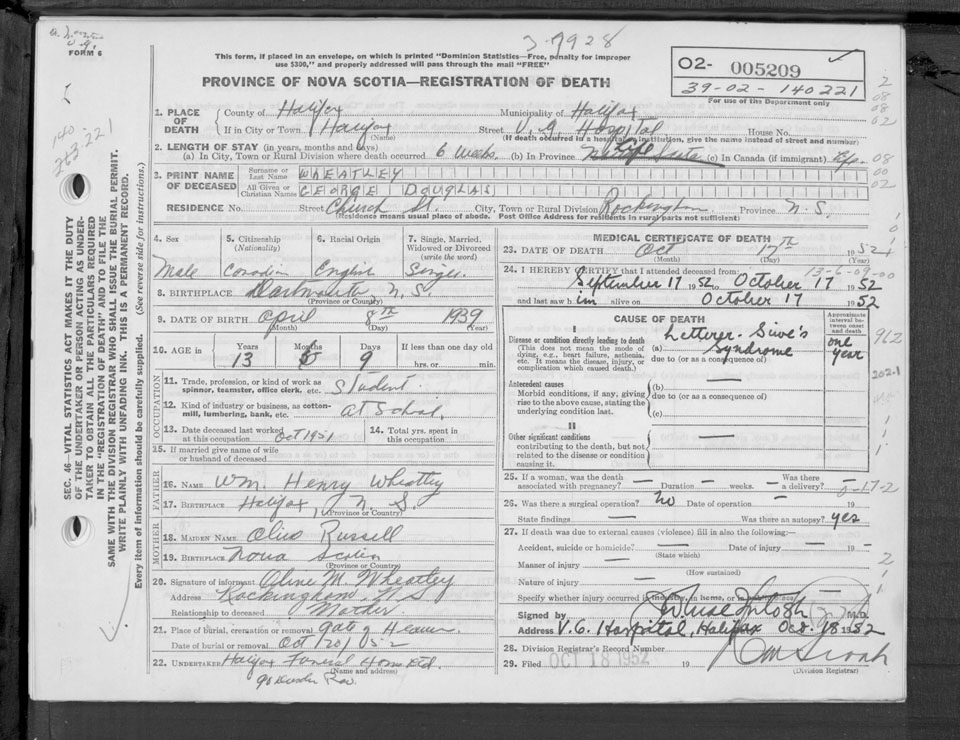 FORM 6
3-7928
This form, if placed in an envelope, on which is printed "Dominion Statistics—Free, penalty for improper
use $300," and properly addressed will pass through the mail "FREE"
PROVINCE OF NOVA SCOTIA—REGISTRATION OF DEATH
O2- 005209
39-02-140221
For use of the Department only
140
263-221
SEC. 46—VITAL STATISTICS ACT MAKES IT THE DUTY
OF THE UNDERTAKER OR PERSON ACTING AS UNDER-
TAKER TO OBTAIN ALL THE PARTICULARS REQUIRED
IN THE "REGISTRATION OF DEATH" AND TO FILE THE
SAME WITH THE DIVISION REGISTRAR WHO SHALL ISSUE THE BURIAL PERMIT.
WRITE PLAINLY WITH UNFADING INK. THIS IS A PERMANENT RECORD.
Every item of information should be carefully supplied. (See reverse side for instructions.)
1. PLACE OF DEATH County of Halifax Municipality of Halifax
If in City or Town Halifax (Name) Street V. G. Hospital House No.
(If death occurred in a hospital or institution, give the name instead of street and number)
2. LENGTH OF STAY (in years, months and days)
(a) In City, Town or Rural Division where death occurred 6 weeks. (b) In Province Life Nova Scotia (c) In Canada (if immigrant) Life.
3. PRINT NAME OF DECEASED Surname or Last Name WHEATLEY
All Given or Christian Names GEORGE DOUGLAS
RESIDENCE No. Street Church St. City, Town or Rural Division Rockingham Province N.S.
(Residence means usual place of abode. Post Office Address for residents in rural parts not sufficient)
4. Sex Male
5. Citizenship (Nationality) Canadian
6. Racial Origin English
7. Single, Married, Widowed or Divorced (write the word) Single
8. BIRTHPLACE Dartmouth, N.S.
(Province or County)
9. DATE OF BIRTH April 8th 1939
(Month) (Day) (Year)
10. AGE in Years 13 Months 5 Days 9 If less than one day old
hrs. or min.
OCCUPATION
11. Trade, profession, or kind of work as
spinner, teamster, office clerk, etc. Student.
12. Kind of industry or business, as cotton-
mill, lumbering, bank, etc. At School.
13. Date deceased last worked
at this occupation Oct 1951
14. Total yrs. spent in
this occupation
25. If married give name of wife
or husband of deceased
FATHER
16. NAME Wm. Henry Wheatley
17. BIRTHPLACE Halifax, N.S.
(Province or Country)
MOTHER
18. MAIDEN NAME Russell
19. BIRTHPLACE Nova Scotia
(Province or County)
20. Signature of informant M. Wheatley
Address Rockingham N S
Relationship to deceased Mother
21. Place of burial, cremation or removal Gate of Heaven
Date of burial or removal Oct 20/52
22. UNDERTAKER Halifax Funeral Home Ltd.
(Name and address)
MEDICAL CERTIFICATE OF DEATH
23. DATE OF DEATH Oct 17th 1952
(Month) (Day) (Year)
24. I HEREBY CERTIFY that I attended deceased from: 13-6-09-00
September 17 1952 to October 17 1952
and last saw him alive on October 17 1952
CAUSE OF DEATH
Approximate interval between onset and death
I
Disease or condition directly leading to death
(This does not mean the mode of
dying, e.g., heart failure, asthenia,
etc. It means the disease, injury, or
complication which caused death.)
(a) Letterer-Siwe's syndrome one year
due to (or as a consequence of)
Antecedent causes
Morbid conditions, if any, giving
rise to the above cause, stating the
underlying condition last.
(b) —
due to (or as a consequence of)
(c)
II
Other significant conditions
contributing to the death, but not
related to the disease or condition
causing it. —
962
202-1
25. If a woman, was the death
associated with pregnancy? — Duration — weeks. — Was there a delivery? —
26. Was there a surgical operation? no Date of operation — 19
State findings — Was there an autopsy? yes
27. If death was due to external causes (violence) fill in also the following:—
Accident, suicide or homicide? — Date of injury — 19 —
(State which)
Manner of injury —
(How sustained)
Nature of injury —
Specify whether injury occurred in industry, in home, or in public place
Signed by M.D.
Address V.G. Hospital, Halifax Oct. 18 1952
28. Division Registrar's Record No.
29. Filed OCT 18 1952 19
(Division Registrar)